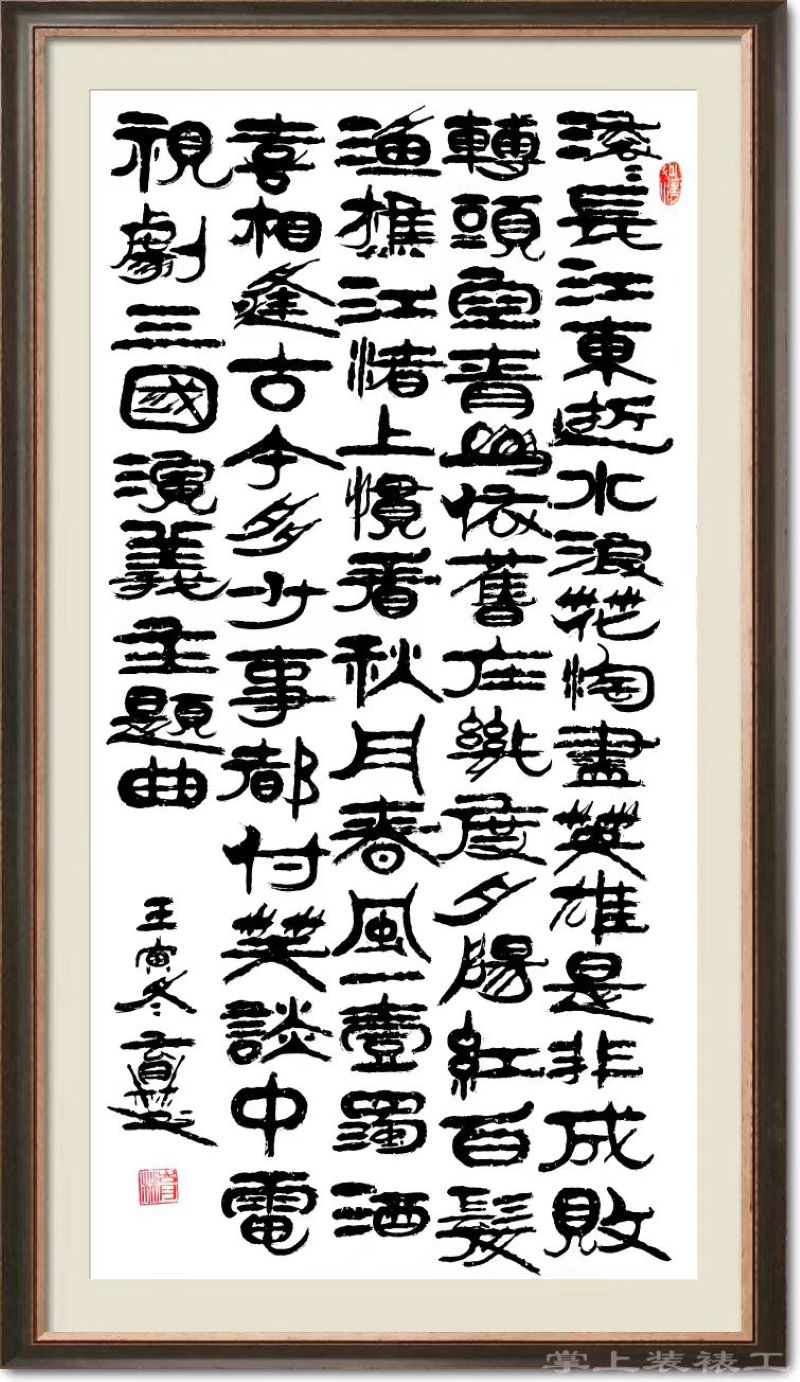 滚〻長江東逝水浪花淘盡英雄是非成敗
轉頭空青山依舊在幾度夕陽紅百髮
漁樵江渚上慣看秋月春風一壺濁酒
喜相逢古今多少事都付笑談中電
視劇三國演義主題曲
壬寅冬育
掌上装裱工